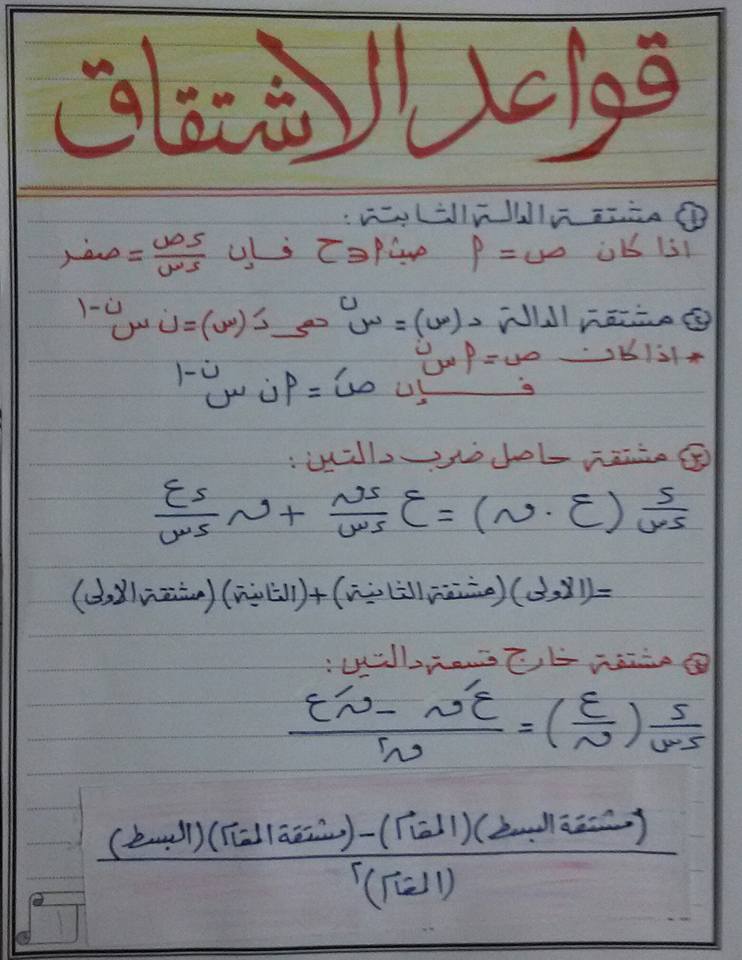 قواعد الاشتقاق
١ مشتقة الدالة الثابتة :
اذا كان ص = م حيث م ∈ ح فإن ءص/ءس = صفر
٢ مشتقة الدالة د(س) = س^ن هى دَ(س) = ن س^ن-١
* اذا كانت ص = م س^ن
فإن صَ = م ن س^ن-١
٣ مشتقة حاصل ضرب دالتين :
ء/ءس (ع . ن) = ع ءن/ءس + ن ءع/ءس
= (الاولى) (مشتقة الثانية) + (الثانية) (مشتقة الاولى)
٤ مشتقة خارج قسمة دالتين :
ء/ءس (ع/ن) = (عَ ن - نَ ع)/ن^٢
(مشتقة البسط) (المقام) - (مشتقة المقام) (البسط)
(المقام)^٢